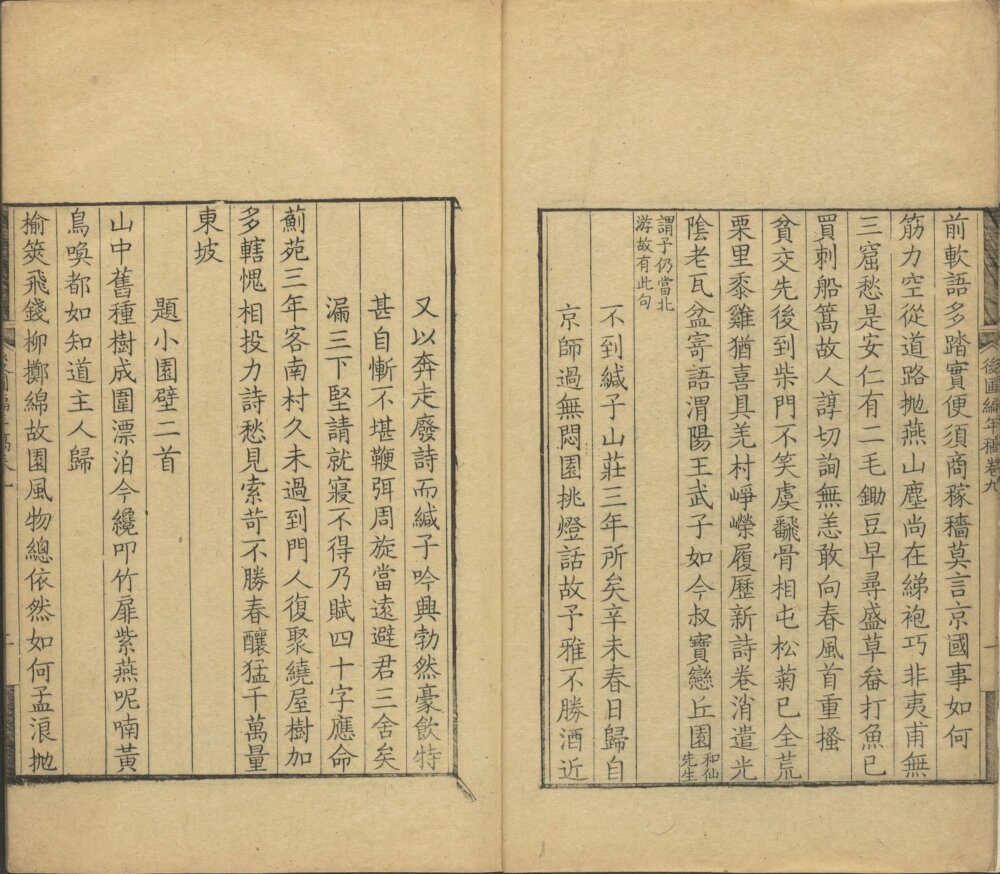 後圃編年稿卷九
一
前軟語多踏實便須商稼穡莫言京國事如何
筋力空從道路拋燕山塵尚在綈袍巧非夷甫無
三窟愁是安仁有二毛鋤豆早尋盛草畚打魚已
買刺船篙故人諄切詢無恙敢向春風首重搔
貧交先後到柴門不笑虞翻骨相屯松菊已全荒
栗里黍雞猶喜具羌村崢嶸履歷新詩卷消遣光
陰老瓦盆寄語渭陽王武子如今叔寶戀丘園和仙先生
謂予仍當北
游故有此句
不到緘子山莊三年所矣辛未春日歸自
京師過無悶園挑燈話故予雅不勝酒近
又以奔走廢詩而緘子吟興勃然豪飲特
甚自慚不堪鞭弭周旋當遠避君三舍矣
漏三下堅請就寢不得乃賦四十字應命
薊苑三年客南村久未過到門人復聚繞屋樹加
多轄愧相投力詩愁見索苛不勝春釀猛千萬量
東坡
題小園壁二首
山中舊種樹成圍漂泊今纔叩竹扉紫燕呢喃黃
鳥喚都如知道主人歸
榆筴飛錢柳擲綿故園風物總依然如何孟浪拋